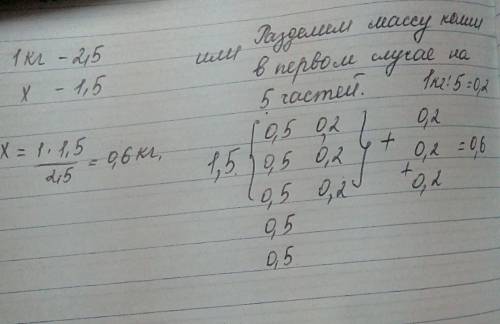 1кг - 2,5
x - 1,5
x = 1·1,5 / 2,5 = 0,6 кг.
или
Разделим массу каши
в первом случае на
5 частей.
1кг:5=0,2
1,5
0,5 0,2
0,5 0,2
0,5 0,2
0,5
0,5
+
0,2
0,2 = 0,6
+
0,2